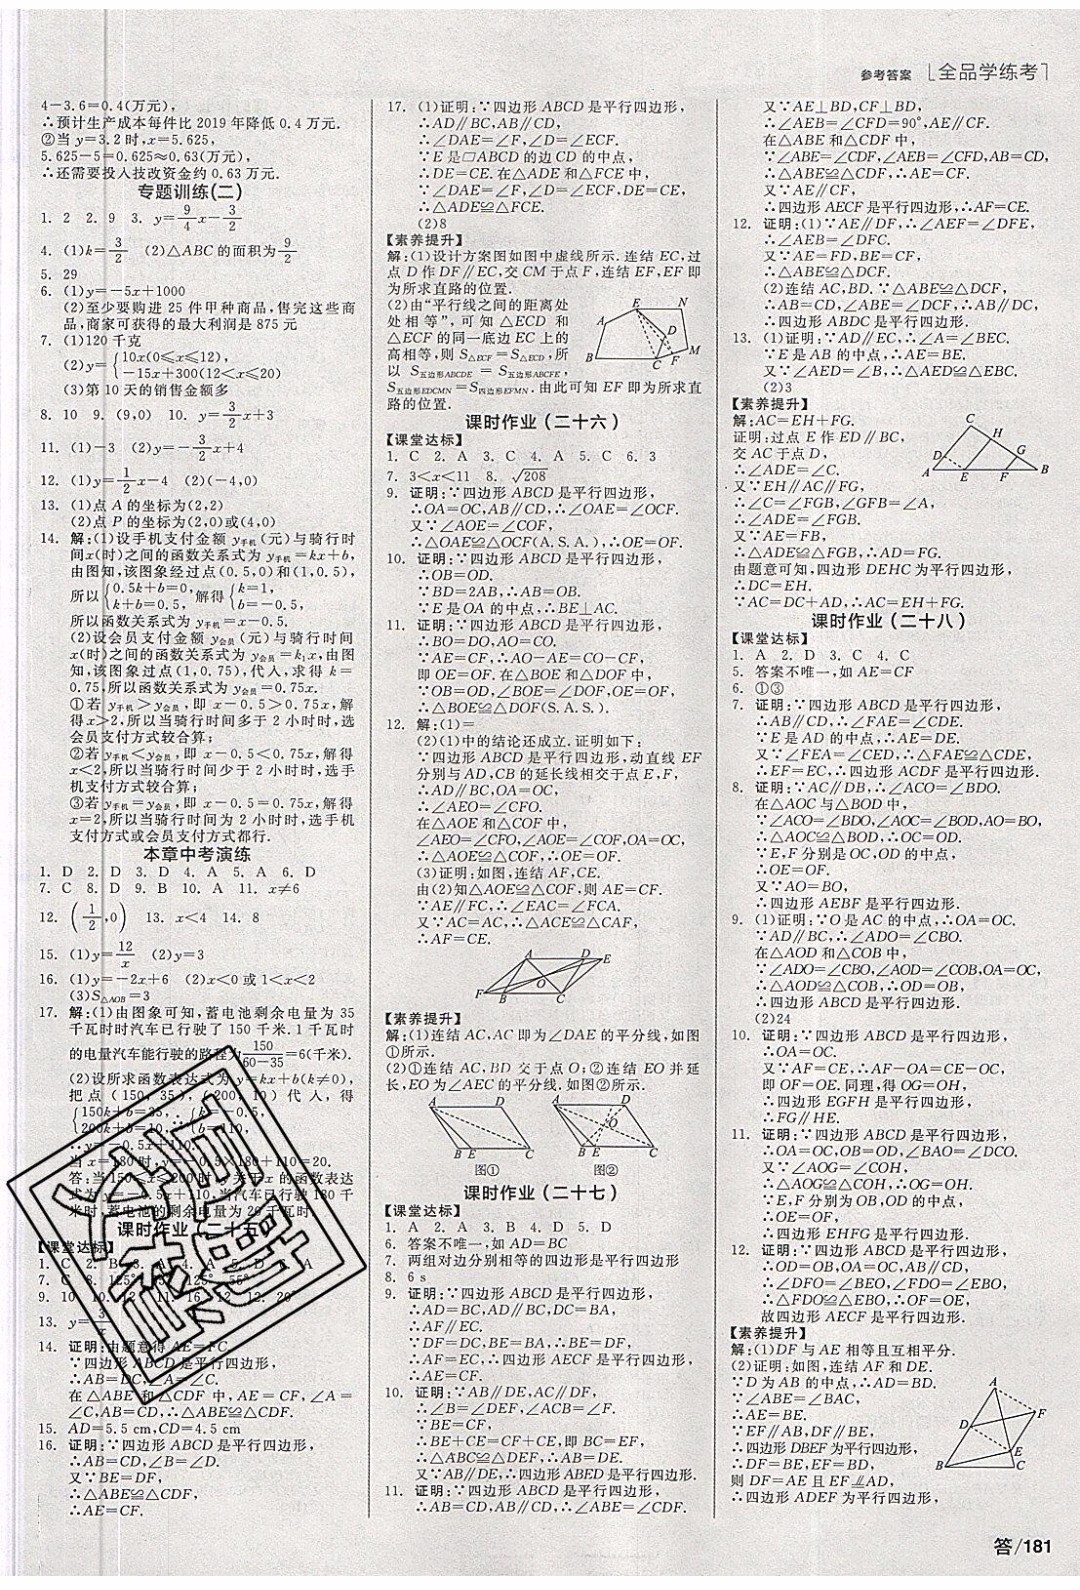 参考答案 全品学练考
4－3.6＝0.4(万元),
∴预计生产成本每件比 2019 年降低 0.4 万元.
②当 y＝3.2 时,x＝5.625,
5.625－5＝0.625≈0.63(万元),
∴还需要投入技改资金约 0.63 万元.
专题训练(二)
1. 2 2. 9 3. y＝9/4x－3/2
4. (1)k＝3/2 (2)△ABC 的面积为 9/2
5. 29
6. (1)y＝－5x＋1000
(2)至少要购进 25 件甲种商品,售完这些商
品,商家可获得的最大利润是 875 元
7. (1)120 千克
(2)y＝{10x(0≤x≤12),
－15x＋300(12<x≤20)
(3)第 10 天的销售金额多
8. 10 9. (9,0) 10. y＝3/2x＋3
11. (1)－3 (2)y＝－3/2x＋4
12. (1)y＝1/2x－4 (2)(－4,0)
13. (1)点 A 的坐标为(2,2)
(2)点 P 的坐标为(2,0)或(4,0)
14. 解:(1)设手机支付金额 y手机(元)与骑行时
间 x(时)之间的函数关系式为 y手机＝kx＋b,
由图知,该图象经过点(0.5,0)和(1,0.5),
所以{0.5k＋b＝0, k＋b＝0.5, 解得{k＝1, b＝－0.5,
所以函数关系式为 y手机＝x－0.5.
(2)设会员支付金额 y会员(元)与骑行时间
x(时)之间的函数关系式为 y会员＝k₁x,由图
知,该图象过点(1,0.75),代入,求得 k＝
0.75,所以函数关系式为 y会员＝0.75x.
①若 y手机>y会员,即 x－0.5>0.75x,解
得 x>2,所以当骑行时间多于 2 小时时,选
会员支付方式较合算;
②若 y手机<y会员,即 x－0.5<0.75x,解得
x<2,所以当骑行时间少于 2 小时时,选手
机支付方式较合算;
③若 y手机＝y会员,即 x－0.5＝0.75x,解得
x＝2,所以当骑行时间为 2 小时时,选手机
支付方式或会员支付方式都行.
本章中考演练
1. D 2. D 3. D 4. A 5. A 6. D
7. C 8. D 9. B 10. A 11. x≠6
12. (1/2,0) 13. x<4 14. 8
15. (1)y＝12/x (2)y＝3
16. (1)y＝－2x＋6 (2)x<0 或 1<x<2
(3)S△AOB＝3
17. 解:(1)由图象可知,蓄电池剩余电量为 35
千瓦时时汽车已行驶了 150 千米.1 千瓦时
的电量汽车能行驶的路程为 150/(60－35)＝6(千米).
(2)设所求函数表达式为 y＝kx＋b(k≠0),
把点(150,35),(200,10)代入,得
{150k＋b＝35, 200k＋b＝10, ∴{k＝－0.5, b＝110,
∴y＝－0.5x＋110.
当 x＝180 时,y＝－0.5×180＋110＝20.
答:当 150≤x≤200 时,y 关于 x 的函数表达
式为 y＝－0.5x＋110,当汽车已行驶 180 千
米时,蓄电池的剩余电量为 20 千瓦时.
课时作业(二十五)
【课堂达标】
1. C 2. B 3. A 4. A 5. D 6. A
7. C 8. 125° 55° 125° 55°
9. 10 10. 12 11. 16 12 12. 20°
13. y＝3/x
14. 证明:由题意得 AE＝FC.
∵四边形 ABCD 是平行四边形,
∴AB＝DC,∠A＝∠C.
在△ABE 和△CDF 中,AE＝CF,∠A＝
∠C,AB＝CD,∴△ABE≌△CDF.
15. AD＝5.5 cm,CD＝4.5 cm
16. 证明:∵四边形 ABCD 是平行四边形,
∴AB＝CD,∠B＝∠D.
又∵BE＝DF,
∴△ABE≌△CDF,
∴AE＝CF.
17. (1)证明:∵四边形 ABCD 是平行四边形,
∴AD∥BC,AB∥CD,
∴∠DAE＝∠F,∠D＝∠ECF.
∵E 是▱ABCD 的边 CD 的中点,
∴DE＝CE.在△ADE 和△FCE 中,
∵∠DAE＝∠F,∠D＝∠ECF,DE＝CE,
∴△ADE≌△FCE.
(2)8
【素养提升】
解:(1)设计方案图如图中虚线所示.连结 EC,过
点 D 作 DF∥EC,交 CM 于点 F,连结 EF,EF 即
为所求直路的位置.
(2)由“平行线之间的距离处
处相等”,可知△ECD 和
△ECF 的同一底边 EC 上的
高相等,则 S△ECF＝S△ECD,所
以 S五边形ABCDE＝S五边形ABCFE,
S五边形EDCMN＝S四边形EFMN.由此可知 EF 即为所求直
路的位置.
A B C D E F M N
课时作业(二十六)
【课堂达标】
1. C 2. A 3. C 4. A 5. C 6. 3
7. 3<x<11 8. √208
9. 证明:∵四边形 ABCD 是平行四边形,
∴OA＝OC,AB∥CD,∴∠OAE＝∠OCF.
又∵∠AOE＝∠COF,
∴△OAE≌△OCF(A.S.A.),∴OE＝OF.
10. 证明:∵四边形 ABCD 是平行四边形,
∴OB＝OD.
∵BD＝2AB,∴AB＝OB.
∵E 是 OA 的中点,∴BE⊥AC.
11. 证明:∵四边形 ABCD 是平行四边形,
∴BO＝DO,AO＝CO.
∵AE＝CF,∴AO－AE＝CO－CF,
即 OE＝OF.在△BOE 和△DOF 中,
∵OB＝OD,∠BOE＝∠DOF,OE＝OF,
∴△BOE≌△DOF(S.A.S.).
12. 解:(1)＝
(2)(1)中的结论还成立.证明如下:
∵四边形 ABCD 是平行四边形,动直线 EF
分别与 AD,CB 的延长线相交于点 E,F,
∴AD∥BC,OA＝OC,
∴∠AEO＝∠CFO.
在△AOE 和△COF 中,
∠AEO＝∠CFO,∠AOE＝∠COF,OA＝OC,
∴△AOE≌△COF,∴OE＝OF.
(3)证明:如图,连结 AF,CE.
由(2)知△AOE≌△COF,则 AE＝CF.
∵AE∥FC,∴∠EAC＝∠FCA.
又∵AC＝AC,∴△ACE≌△CAF,
∴AF＝CE.
A D E O F B C
【素养提升】
解:(1)连结 AC,AC 即为∠DAE 的平分线,如图
①所示.
(2)①连结 AC,BD 交于点 O;②连结 EO 并延
长,EO 为∠AEC 的平分线.如图②所示.
A D B E C A D O B E C
图① 图②
课时作业(二十七)
【课堂达标】
1. A 2. A 3. B 4. D 5. D
6. 答案不唯一,如 AD＝BC
7. 两组对边分别相等的四边形是平行四边形
8. 6 s
9. 证明:∵四边形 ABCD 是平行四边形,
∴AD＝BC,AD∥BC,DC＝BA,
∴AF∥EC.
∵DF＝DC,BE＝BA,∴BE＝DF,
∴AF＝EC,∴四边形 AECF 是平行四边形.
10. 证明:∵AB∥DE,AC∥DF,
∴∠B＝∠DEF,∠ACB＝∠F.
∵BE＝CF,
∴BE＋CE＝CF＋CE,即 BC＝EF,
∴△ABC≌△DEF,∴AB＝DE.
又∵AB∥DE,∴四边形 ABED 是平行四边形.
11. 证明:∵四边形 ABCD 是平行四边形,
∴AB＝CD,AB∥CD,∴∠ABE＝∠CDF.
又∵AE⊥BD,CF⊥BD,
∴∠AEB＝∠CFD＝90°,AE∥CF.
在△ABE 和△CDF 中,
∵∠ABE＝∠CDF,∠AEB＝∠CFD,AB＝CD,
∴△ABE≌△CDF,∴AE＝CF.
又∵AE∥CF,
∴四边形 AECF 是平行四边形,∴AF＝CE.
12. 证明:(1)∵AE∥DF,∴∠AEF＝∠DFE,
∴∠AEB＝∠DFC.
又∵AE＝FD,BE＝CF,
∴△ABE≌△DCF.
(2)连结 AC,BD.∵△ABE≌△DCF,
∴AB＝CD,∠ABE＝∠DCF,∴AB∥DC,
∴四边形 ABDC 是平行四边形.
13. (1)证明:∵AD∥EC,∴∠A＝∠BEC.
∵E 是 AB 的中点,∴AE＝BE.
又∵∠AED＝∠B,∴△AED≌△EBC.
(2)3
【素养提升】
解:AC＝EH＋FG.
证明:过点 E 作 ED∥BC,
交 AC 于点 D,
∴∠ADE＝∠C.
又∵EH∥AC∥FG,
∴∠C＝∠FGB,∠GFB＝∠A,
∴∠ADE＝∠FGB.
又∵AE＝FB,
∴△ADE≌△FGB,∴AD＝FG.
由题意可知,四边形 DEHC 为平行四边形,
∴DC＝EH.
∵AC＝DC＋AD,∴AC＝EH＋FG.
C H D G A E F B
课时作业(二十八)
【课堂达标】
1. A 2. D 3. C 4. C
5. 答案不唯一,如 AE＝CF
6. ①③
7. 证明:∵四边形 ABCD 是平行四边形,
∴AB∥CD,∴∠FAE＝∠CDE.
∵E 是 AD 的中点,∴AE＝DE.
又∵∠FEA＝∠CED,∴△FAE≌△CDE,
∴EF＝EC,∴四边形 ACDF 是平行四边形.
8. 证明:∵AC∥DB,∴∠ACO＝∠BDO.
在△AOC 与△BOD 中,
∵∠ACO＝∠BDO,∠AOC＝∠BOD,AO＝BO,
∴△AOC≌△BOD,∴OC＝OD.
∵E,F 分别是 OC,OD 的中点,
∴OE＝OF.
又∵AO＝BO,
∴四边形 AEBF 是平行四边形.
9. (1)证明:∵O 是 AC 的中点,∴OA＝OC.
∵AD∥BC,∴∠ADO＝∠CBO.
在△AOD 和△COB 中,
∵∠ADO＝∠CBO,∠AOD＝∠COB,OA＝OC,
∴△AOD≌△COB,∴OD＝OB,
∴四边形 ABCD 是平行四边形.
(2)24
10. 证明:∵四边形 ABCD 是平行四边形,
∴OA＝OC.
又∵AF＝CE,∴AF－OA＝CE－OC,
即 OF＝OE.同理,得 OG＝OH,
∴四边形 EGFH 是平行四边形,
∴FG∥HE.
11. 证明:∵四边形 ABCD 是平行四边形,
∴OA＝OC,OB＝OD,∠BAO＝∠DCO.
又∵∠AOG＝∠COH,
∴△AOG≌△COH,∴OG＝OH.
∵E,F 分别为 OB,OD 的中点,
∴OE＝OF,
∴四边形 EHFG 是平行四边形.
12. 证明:∵四边形 ABCD 是平行四边形,
∴OD＝OB,OA＝OC,AB∥CD,
∴∠DFO＝∠BEO,∠FDO＝∠EBO,
∴△FDO≌△EBO,∴OF＝OE,
故四边形 AECF 是平行四边形.
【素养提升】
解:(1)DF 与 AE 相等且互相平分.
(2)证明:如图,连结 AF 和 DE.
∵D 为 AB 的中点,∴AD＝BD.
∵∠ABE＝∠BAC,
∴AE＝BE.
∵EF∥AB,DF∥BE,
∴四边形 DBEF 为平行四边形,
∴DF＝BE,EF＝BD,
则 DF＝AE 且 EF⫽AD,
∴四边形 ADEF 为平行四边形,
A F D E B C
答/181